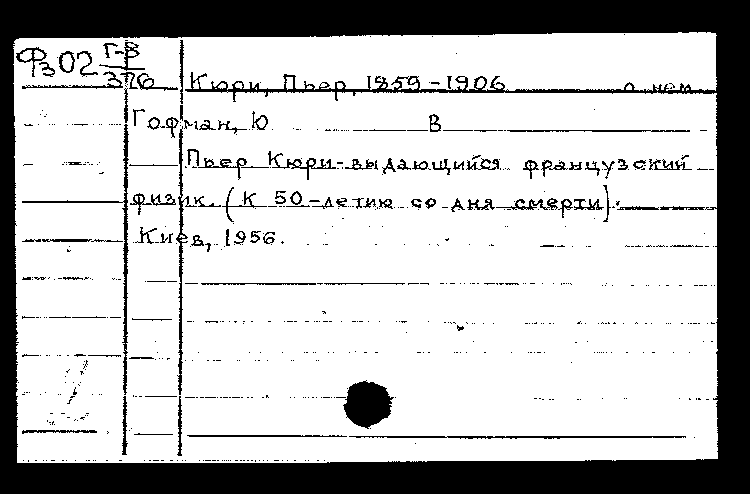 Фз02 Г-В
376
Кюри, Пьер, 1859-1906 о нем
Гофман, Ю В
Пьер Кюри-выдающийся французский
физик. (К 50-летию со дня смерти).
Киев, 1956.